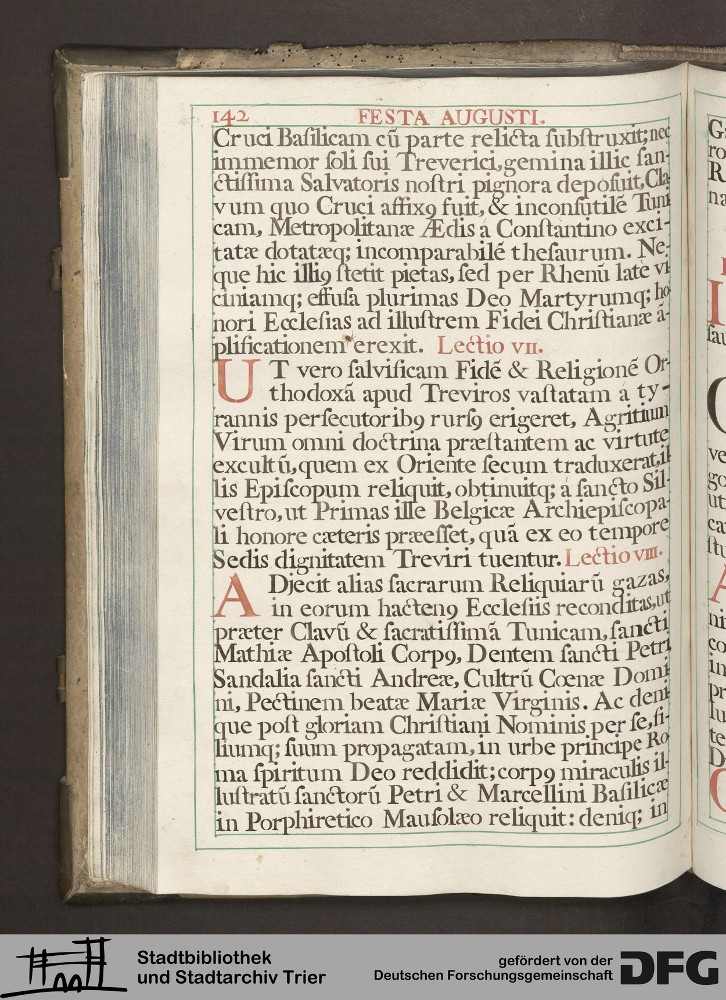 142 FESTA AUGUSTI.
Cruci Baſilicam cū parte relicta ſubſtruxit; nec
immemor ſoli ſui Treverici, gemina illic ſan-
ctiſſima Salvatoris noſtri pignora depoſuit, Cla
vum quo Cruci affixꝰ fuit, & inconſutilē Tuni
cam, Metropolitanæ Ædis a Conſtantino exci-
tatæ dotatæq; incomparabilē theſaurum. Ne-
que hic illiꝰ ſtetit pietas, ſed per Rhenū late vi
ciniamq; effuſa plurimas Deo Martyrumq; ho
nori Eccleſias ad illuſtrem Fidei Chriſtianæ ā-
plificationem erexit. Lectio VII.
UT vero ſalvificam Fidē & Religionē Or-
thodoxā apud Treviros vaſtatam á ty-
rannis perſecutoribꝰ rurſꝰ erigeret, Agritium
Virum omni doctrina præſtantem ac virtute
excultū, quem ex Oriente ſecum traduxerat, il
lis Epiſcopum reliquit, obtinuitq; á ſancto Sil-
veſtro, ut Primas ille Belgicæ Archiepiſcopa-
li honore cæteris præeſſet, quā ex eo tempore
Sedis dignitatem Treviri tuentur. Lectio VIII.
ADjecit alias ſacrarum Reliquiarū gazas,
in eorum hactenꝰ Eccleſiis reconditas, ut
præter Clavū & ſacratiſſimā Tunicam, ſancti
Mathiæ Apoſtoli Corpꝰ, Dentem ſancti Petri
Sandalia ſancti Andreæ, Cultrū Cœnæ Domi
ni, Pectinem beatæ Mariæ Virginis. Ac deni
que poſt gloriam Chriſtiani Nominis per ſe, fi-
liumq; ſuum propagatam, in urbe principe Ro
ma ſpiritum Deo reddidit; corpꝰ miraculis il-
luſtratū ſanctorū Petri & Marcellini Baſilicæ
in Porphiretico Mauſolæo reliquit: deniq; in
Stadtbibliothek
und Stadtarchiv Trier
gefördert von der
Deutschen Forschungsgemeinschaft
DFG